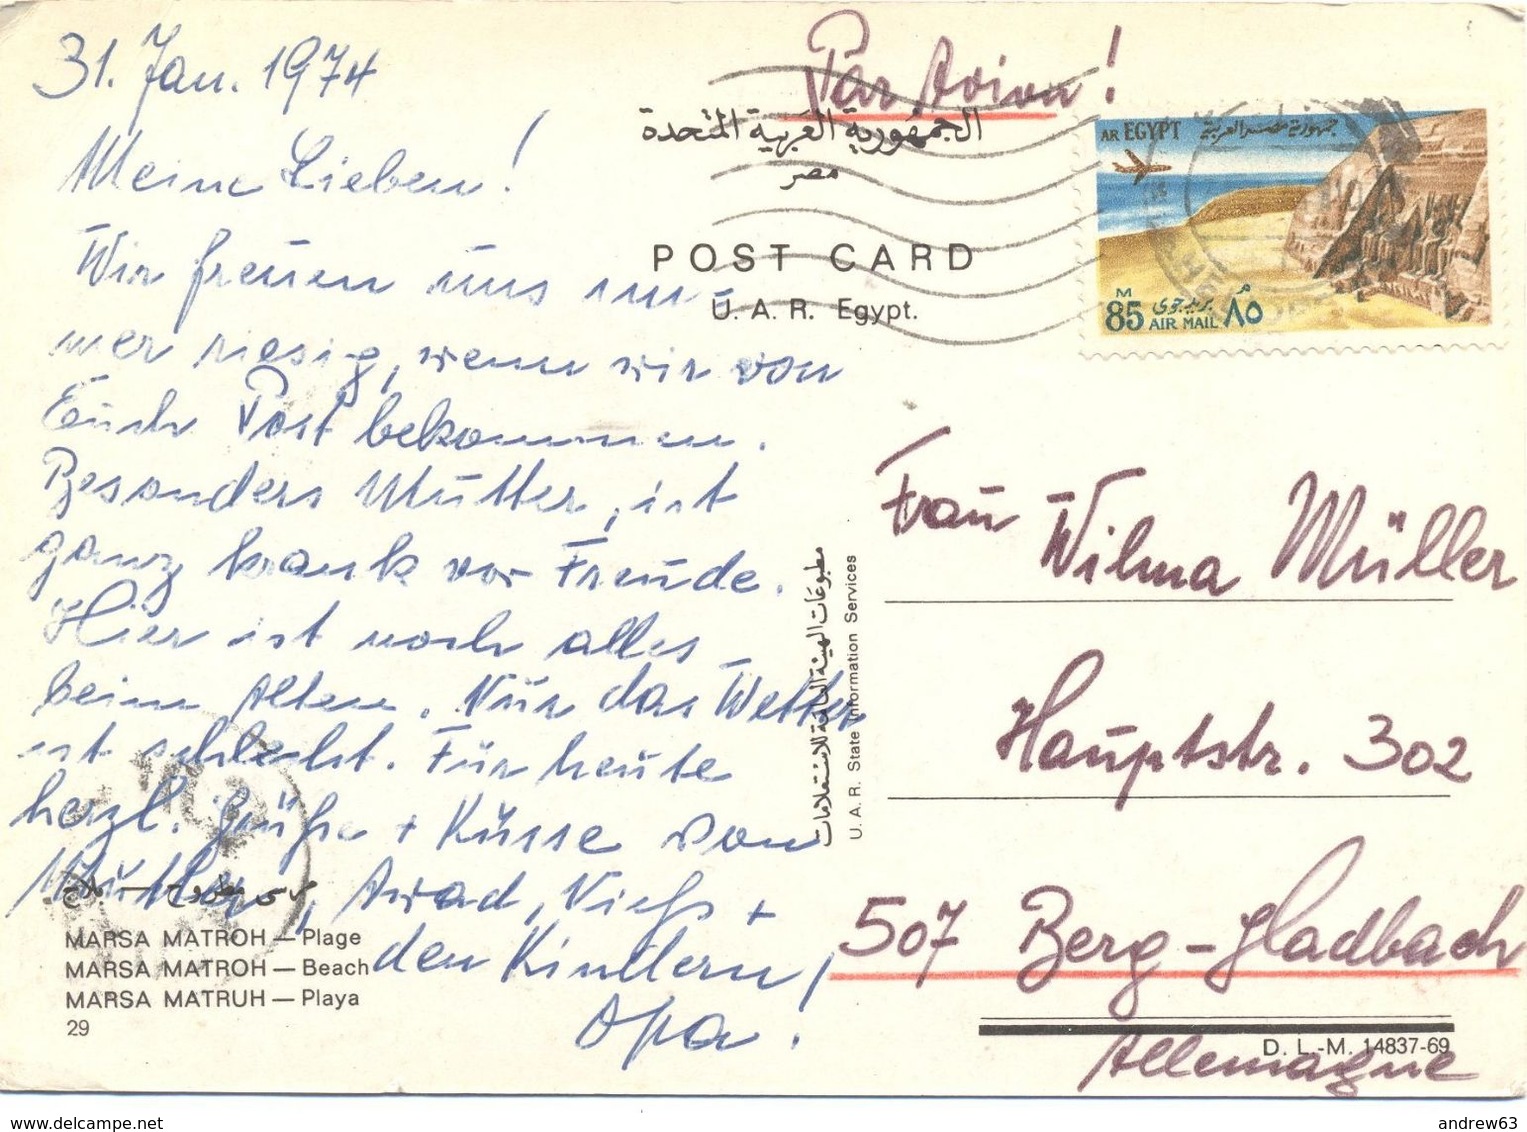 31. Jan. 1974
Meine Lieben!
Wir freuen uns im-
mer riesig, wenn wir von
Euch Post bekommen.
Besonders Mutter, ist
ganz krank vor Freude.
Hier ist noch alles
beim Alten. Nur das Wetter
ist schlecht. Für heute
herzl. Grüße + Küsse von
Mutter, Awad,
den Kindern!
Opa!
بلاج — مرسى مطروح
MARSA MATROH — Plage
MARSA MATROH — Beach
MARSA MATRUH — Playa
29
Par Avion!
الجمهورية العربية المتحدة
مصر
POST CARD
U. A. R. Egypt.
AR EGYPT جمهورية مصر العربية
M 85 AIR MAIL بريد جوى ٨٥ م
مطبوعات الهيئة العامة للاستعلامات
U. A. R. State Information Services
Frau Wilma Müller
Hauptstr. 302
507 Berg-Gladbach
Allemagne
D. L.-M. 14837-69
www.delcampe.net
andrew63